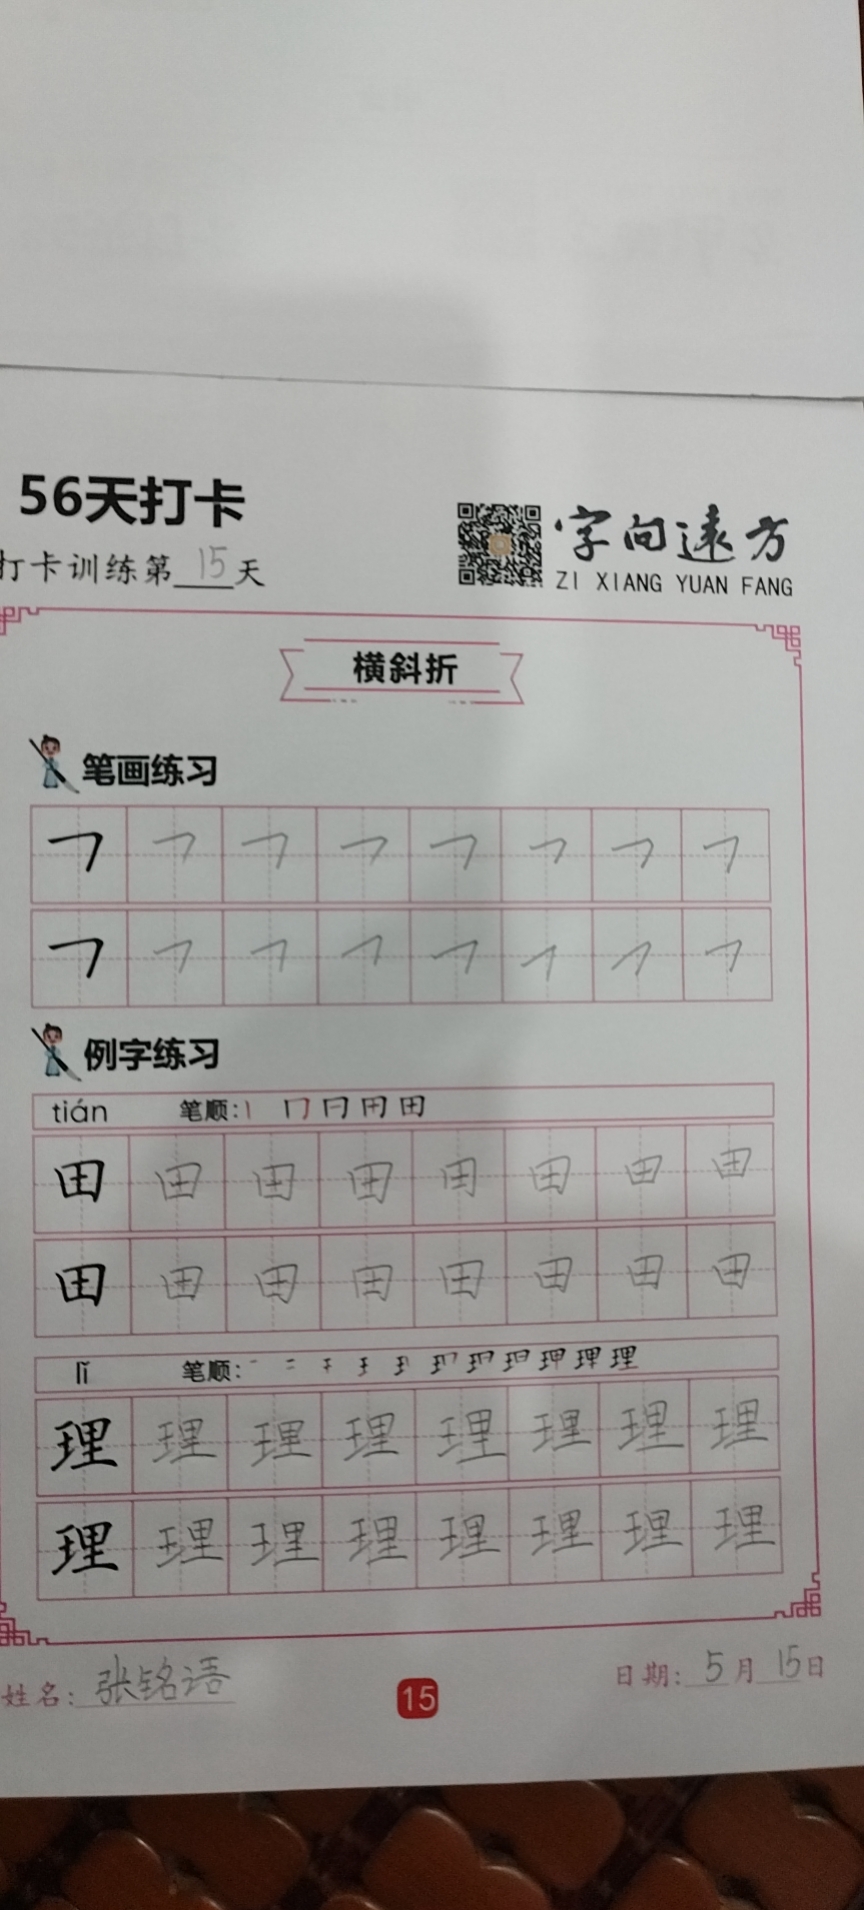 56天打卡
打卡训练第15天
字向遠方
ZI XIANG YUAN FANG
横斜折
笔画练习
㇇ ㇇ ㇇ ㇇ ㇇ ㇇ ㇇ ㇇
㇇ ㇇ ㇇ ㇇ ㇇ ㇇ ㇇ ㇇
例字练习
tián 笔顺: 丨 冂 冃 田 田
田 田 田 田 田 田 田 田
田 田 田 田 田 田 田 田
lǐ 笔顺: 理
理 理 理 理 理 理 理 理
理 理 理 理 理 理 理 理
姓名: 张铭语
15
日期: 5月15日